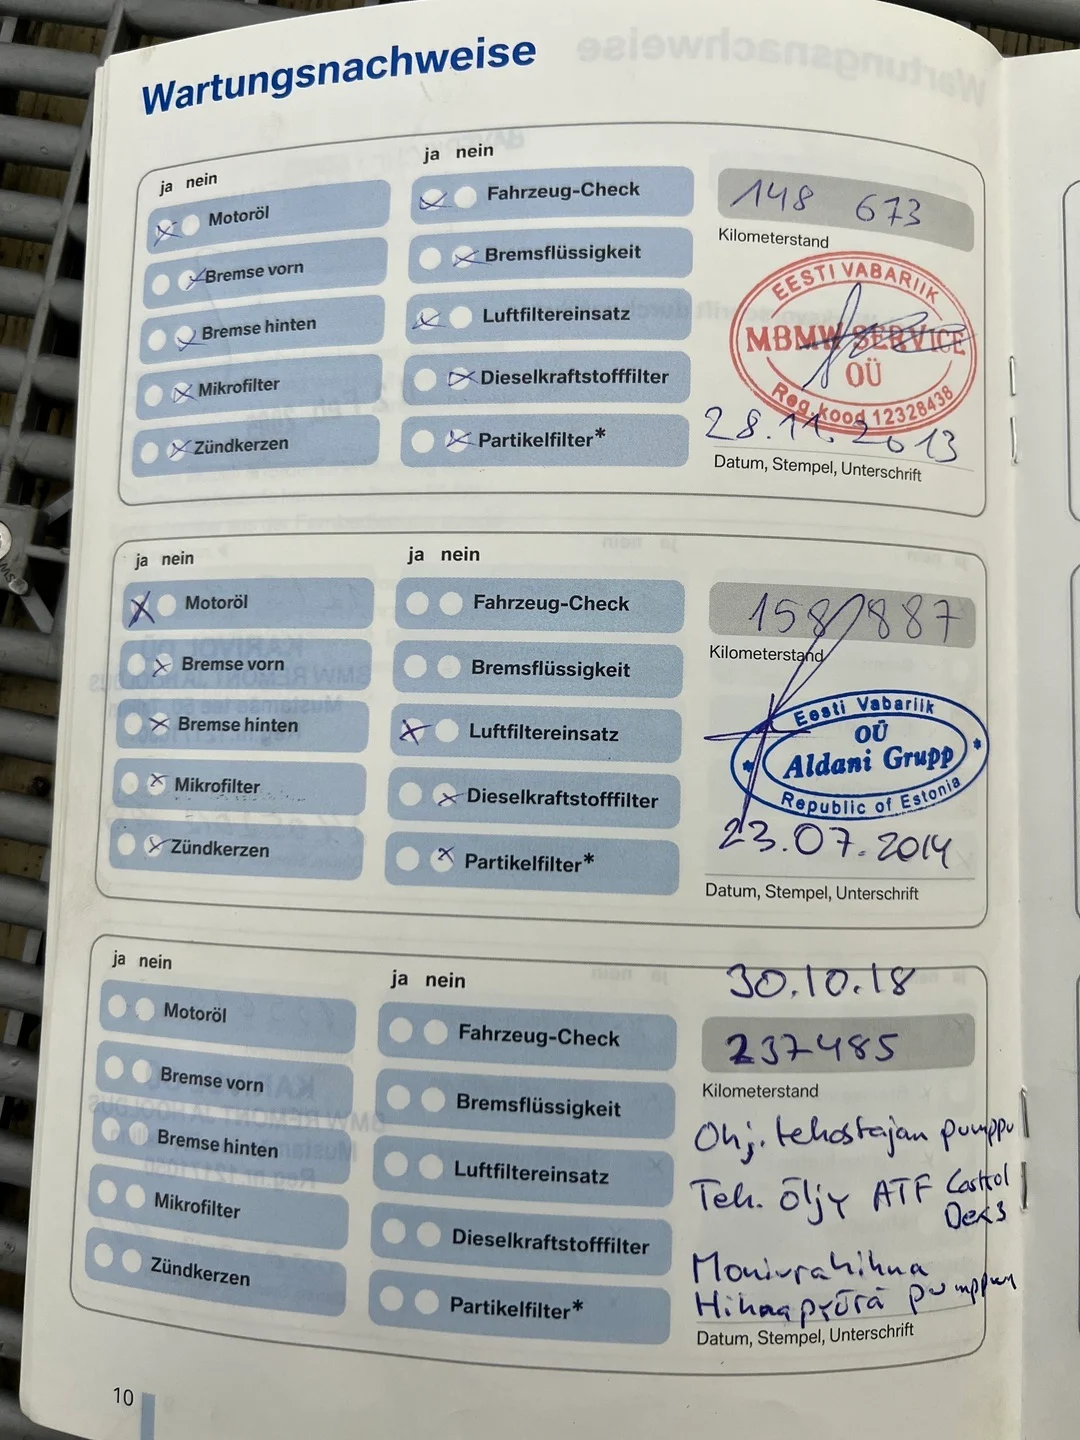 Wartungsnachweise
ja nein
Motoröl
Bremse vorn
Bremse hinten
Mikrofilter
Zündkerzen
ja nein
Fahrzeug-Check
Bremsflüssigkeit
Luftfiltereinsatz
Dieselkraftstofffilter
Partikelfilter*
148 673
Kilometerstand
EESTI VABARIIK
MBMW SERVICE
OÜ
Reg.kood 12328438
28.11.2013
Datum, Stempel, Unterschrift
ja nein
Motoröl
Bremse vorn
Bremse hinten
Mikrofilter
Zündkerzen
ja nein
Fahrzeug-Check
Bremsflüssigkeit
Luftfiltereinsatz
Dieselkraftstofffilter
Partikelfilter*
158 887
Kilometerstand
Eesti Vabariik
OÜ
Aldani Grupp
Republic of Estonia
23.07.2014
Datum, Stempel, Unterschrift
ja nein
Motoröl
Bremse vorn
Bremse hinten
Mikrofilter
Zündkerzen
ja nein
Fahrzeug-Check
Bremsflüssigkeit
Luftfiltereinsatz
Dieselkraftstofffilter
Partikelfilter*
30.10.18
237485
Kilometerstand
Ohj. tehostajan pumppu
Teh. öljy ATF Castrol
Dex3
Moniurahihna
Hihnapyörä pumppuun
Datum, Stempel, Unterschrift
10